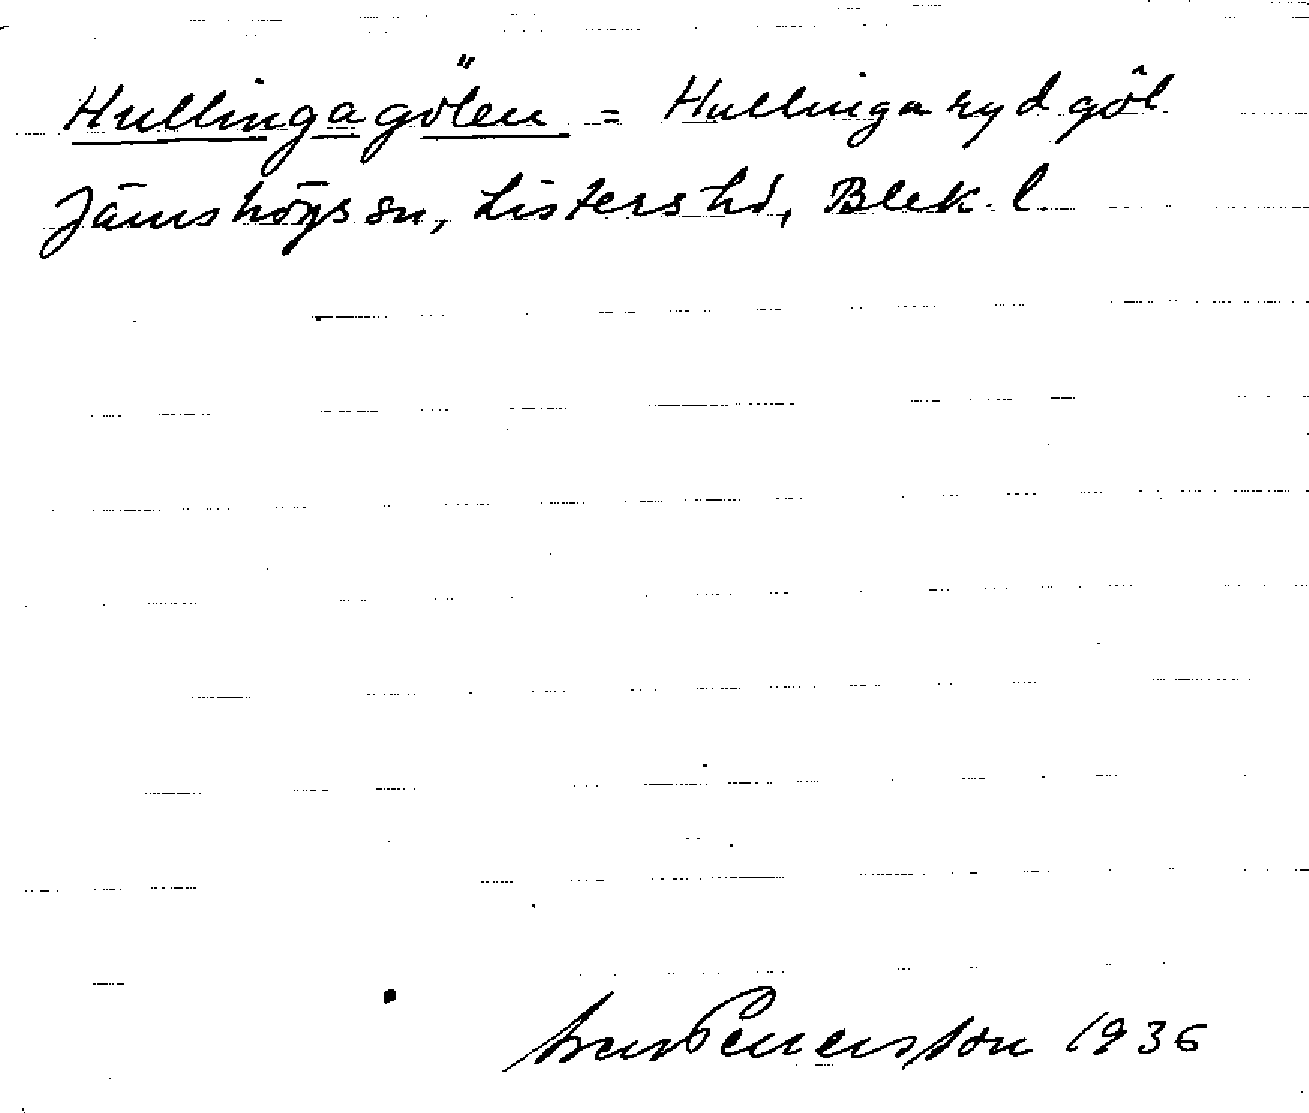 Hullingagölen = Hullingarydgöl
Jämshögs sn, Listers hd, Blek. l.
1936